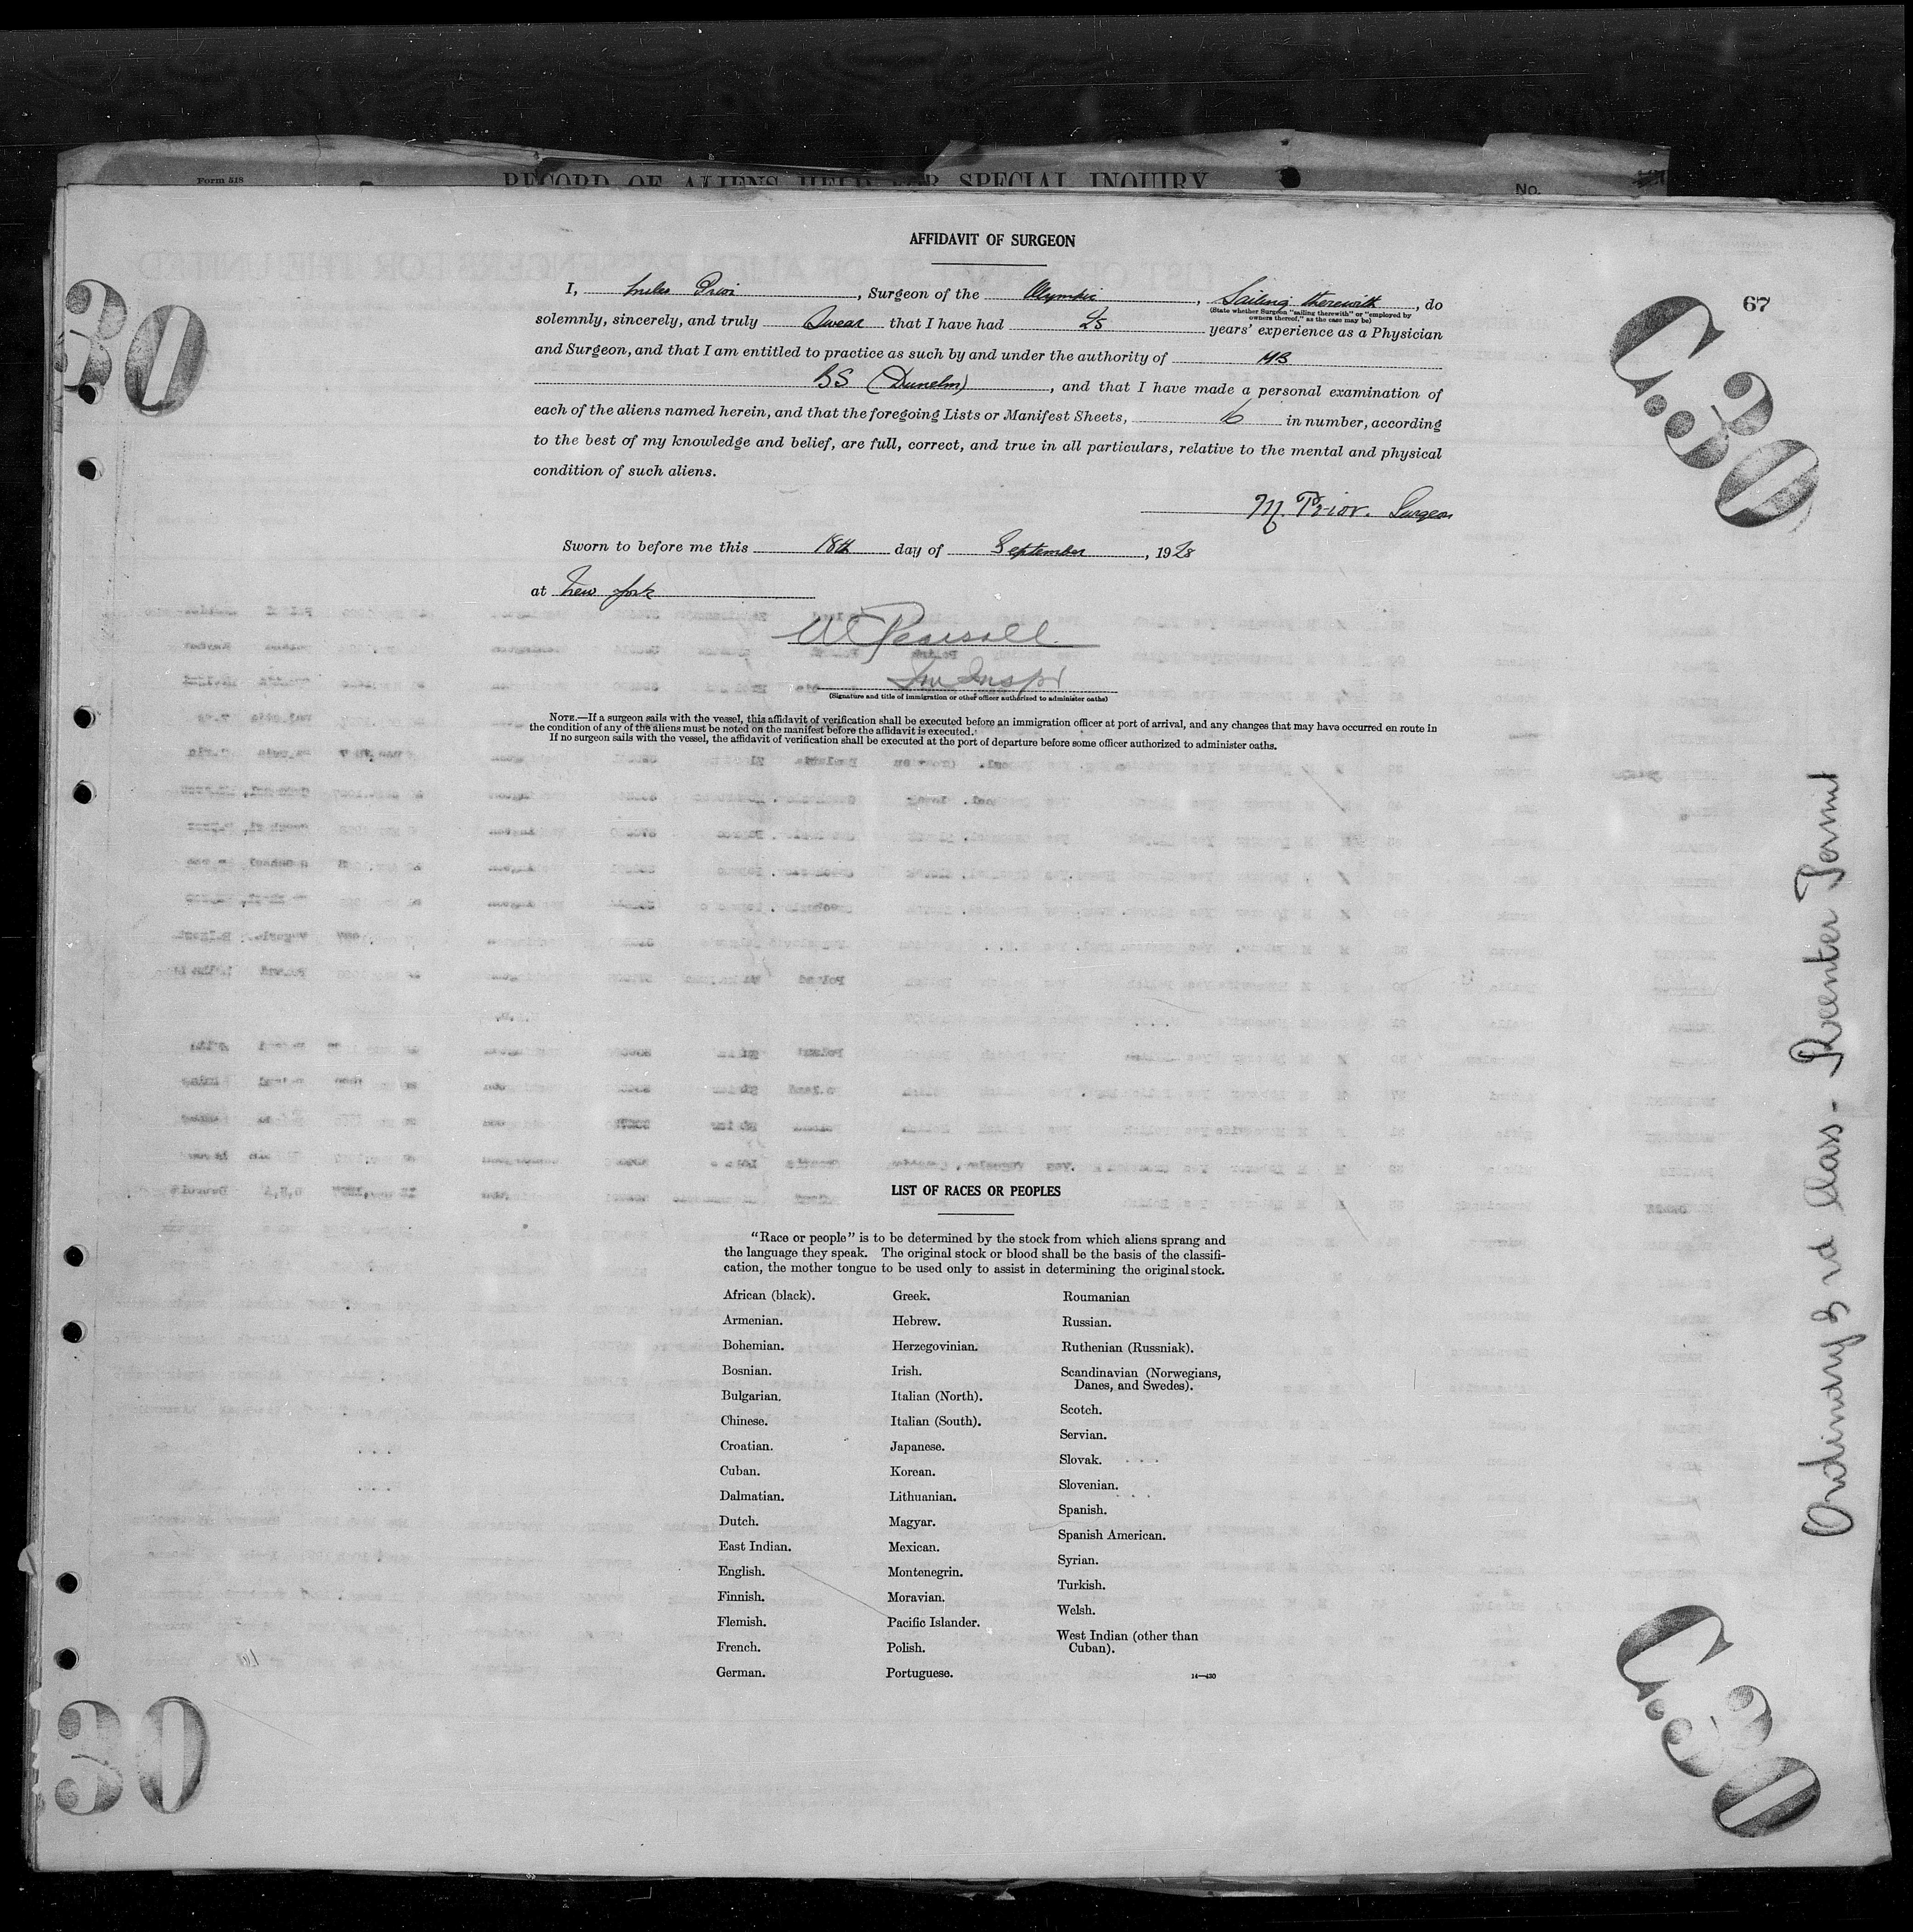 Form 518
RECORD OF ALIENS HELD FOR SPECIAL INQUIRY
No.
AFFIDAVIT OF SURGEON
67
30
C.30
I, Miles Prior, Surgeon of the Olympic, Sailing therewith, do
(State whether Surgeon "sailing therewith" or "employed by
owners thereof," as the case may be)
solemnly, sincerely, and truly Swear that I have had 25 years' experience as a Physician
and Surgeon, and that I am entitled to practice as such by and under the authority of MB
BS (Dunelm), and that I have made a personal examination of
each of the aliens named herein, and that the foregoing Lists or Manifest Sheets, 16 in number, according
to the best of my knowledge and belief, are full, correct, and true in all particulars, relative to the mental and physical
condition of such aliens.
M. Prior. Surgeon
Sworn to before me this 18th day of September, 1928
at New York
Pearsall
Im Inspr
(Signature and title of immigration or other officer authorized to administer oaths)
NOTE.—If a surgeon sails with the vessel, this affidavit of verification shall be executed before an immigration officer at port of arrival, and any changes that may have occurred en route in
the condition of any of the aliens must be noted on the manifest before the affidavit is executed.
If no surgeon sails with the vessel, the affidavit of verification shall be executed at the port of departure before some officer authorized to administer oaths.
Ordinary 3rd Class - Reenter Permit
LIST OF RACES OR PEOPLES
"Race or people" is to be determined by the stock from which aliens sprang and
the language they speak. The original stock or blood shall be the basis of the classifi-
cation, the mother tongue to be used only to assist in determining the original stock.
African (black).
Armenian.
Bohemian.
Bosnian.
Bulgarian.
Chinese.
Croatian.
Cuban.
Dalmatian.
Dutch.
East Indian.
English.
Finnish.
Flemish.
French.
German.
Greek.
Hebrew.
Herzegovinian.
Irish.
Italian (North).
Italian (South).
Japanese.
Korean.
Lithuanian.
Magyar.
Mexican.
Montenegrin.
Moravian.
Pacific Islander.
Polish.
Portuguese.
Roumanian
Russian.
Ruthenian (Russniak).
Scandinavian (Norwegians,
Danes, and Swedes).
Scotch.
Servian.
Slovak.
Slovenian.
Spanish.
Spanish American.
Syrian.
Turkish.
Welsh.
West Indian (other than
Cuban).
14—430
30
C.30